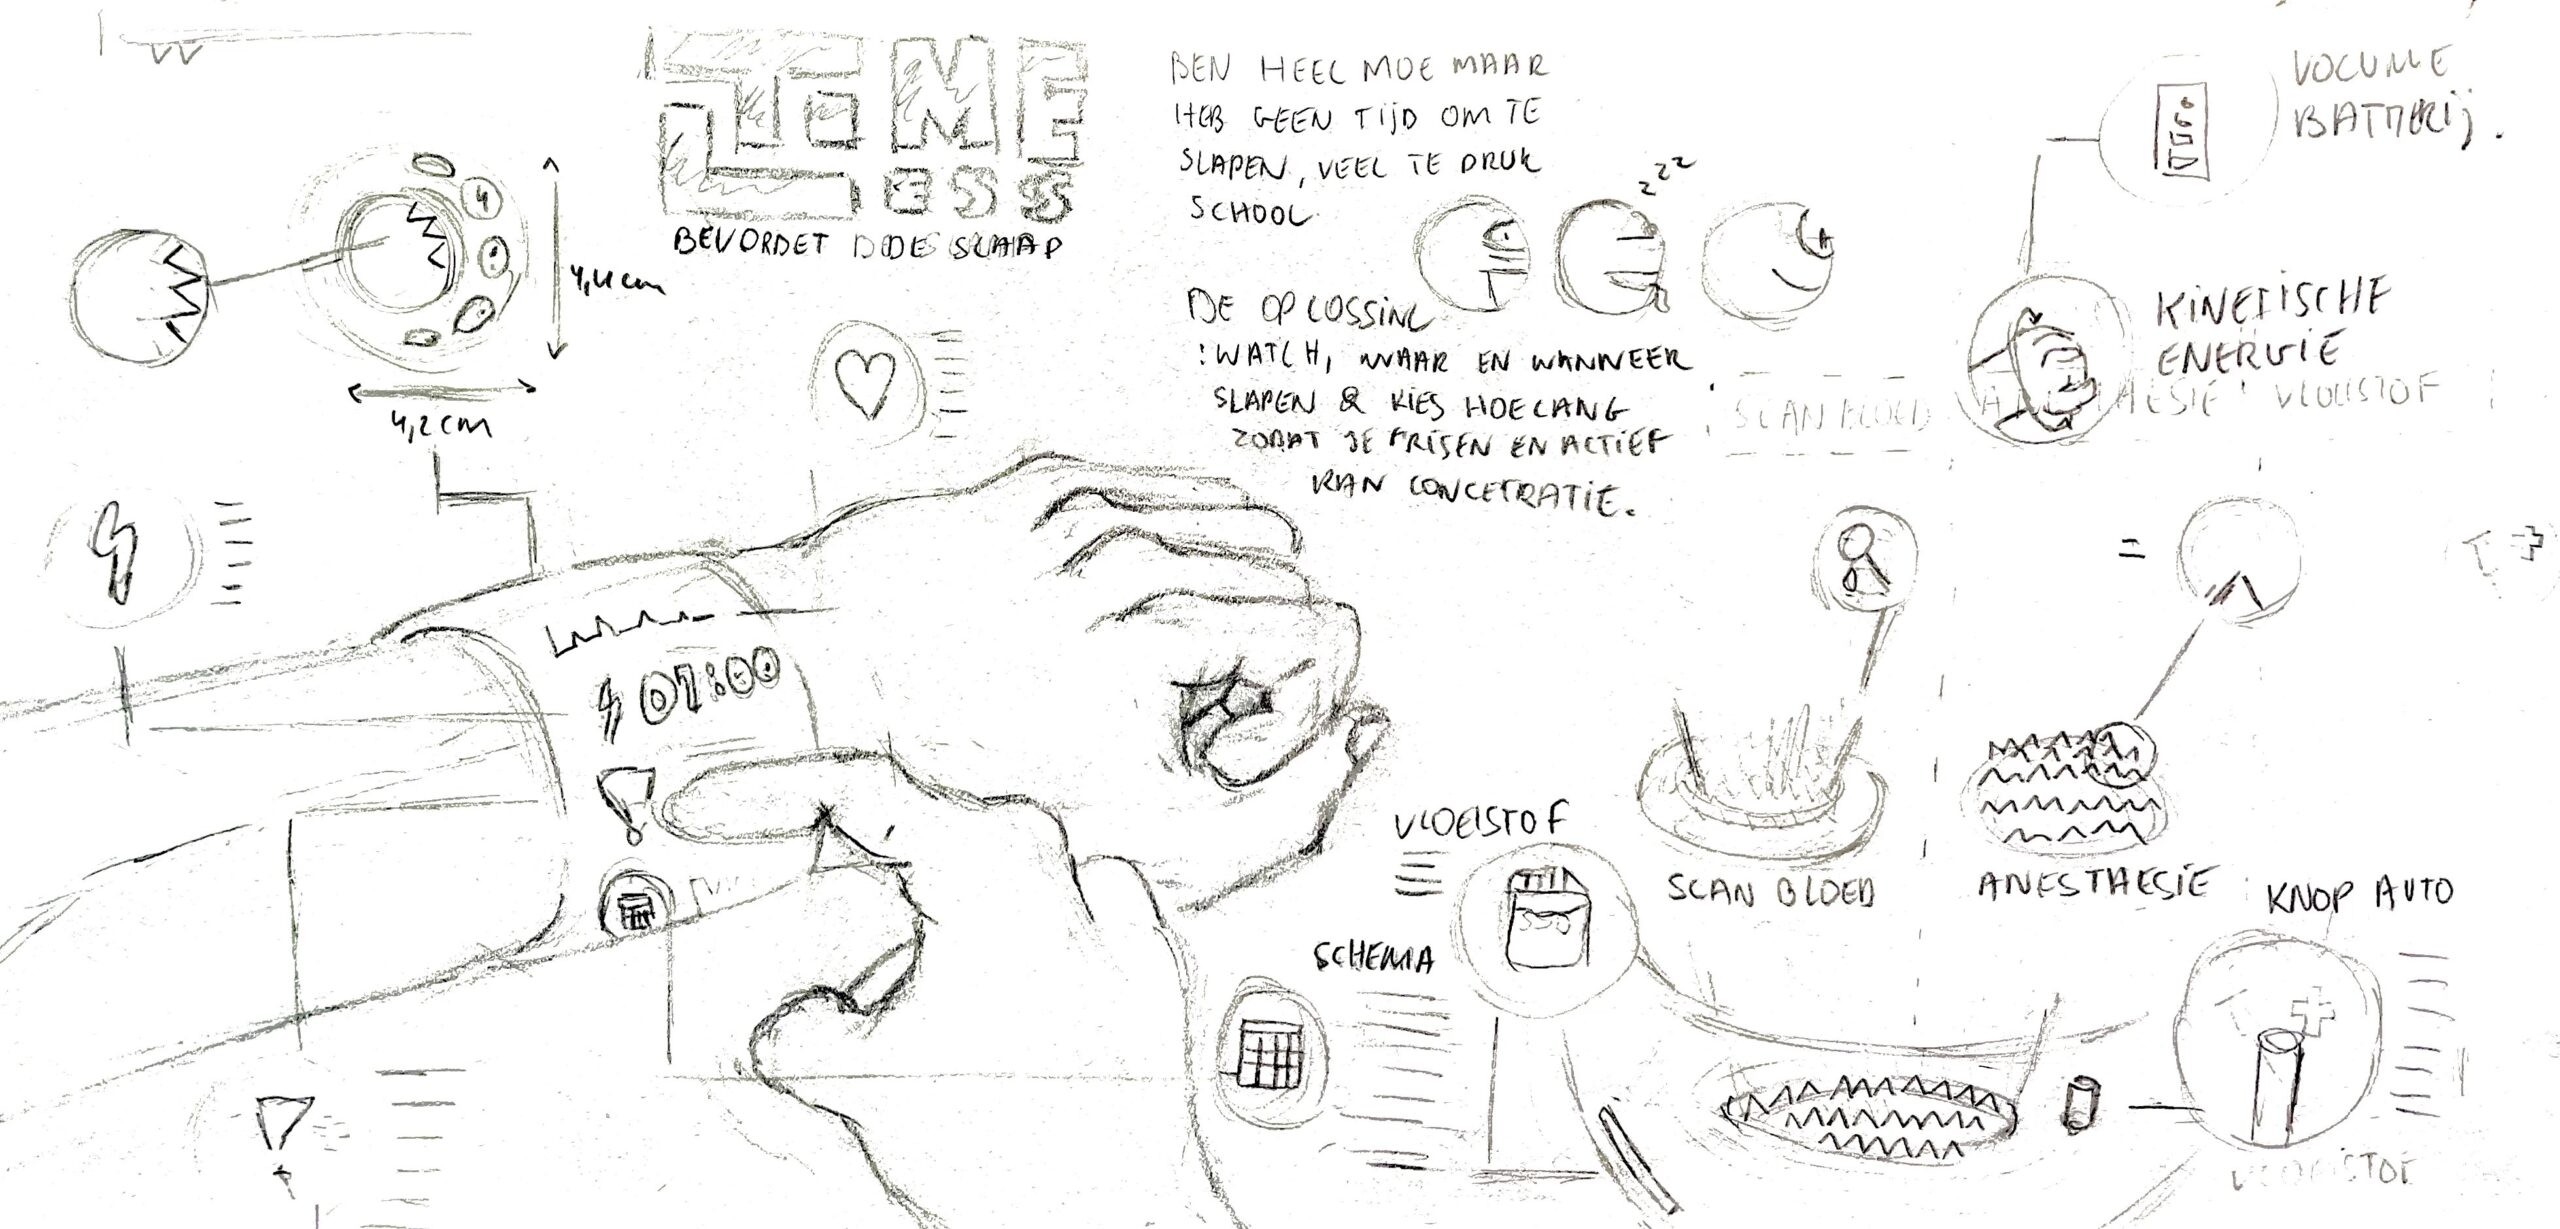 TIME
LESS
BEVORDET DE SLAAP
BEN HEEL MOE MAAR
HEB GEEN TIJD OM TE
SLAPEN, VEEL TE DRUK
SCHOOL.
zzz
DE OPLOSSING
: WATCH, WAAR EN WANNEER
SLAPEN & KIES HOELANG
ZODAT JE FRISEN EN ACTIEF
KAN CONCETRATIE.
VOLUME
BATTERIJ.
KINETISCHE
ENERGIE
SCAN BLOED
ANESTHESIE
VLOEISTOF
4
4,4cm
4,2cm
07:00
VLOEISTOF
SCHEMA
SCAN BLOED
ANESTHESIE
KNOP AUTO
VLOEISTOF